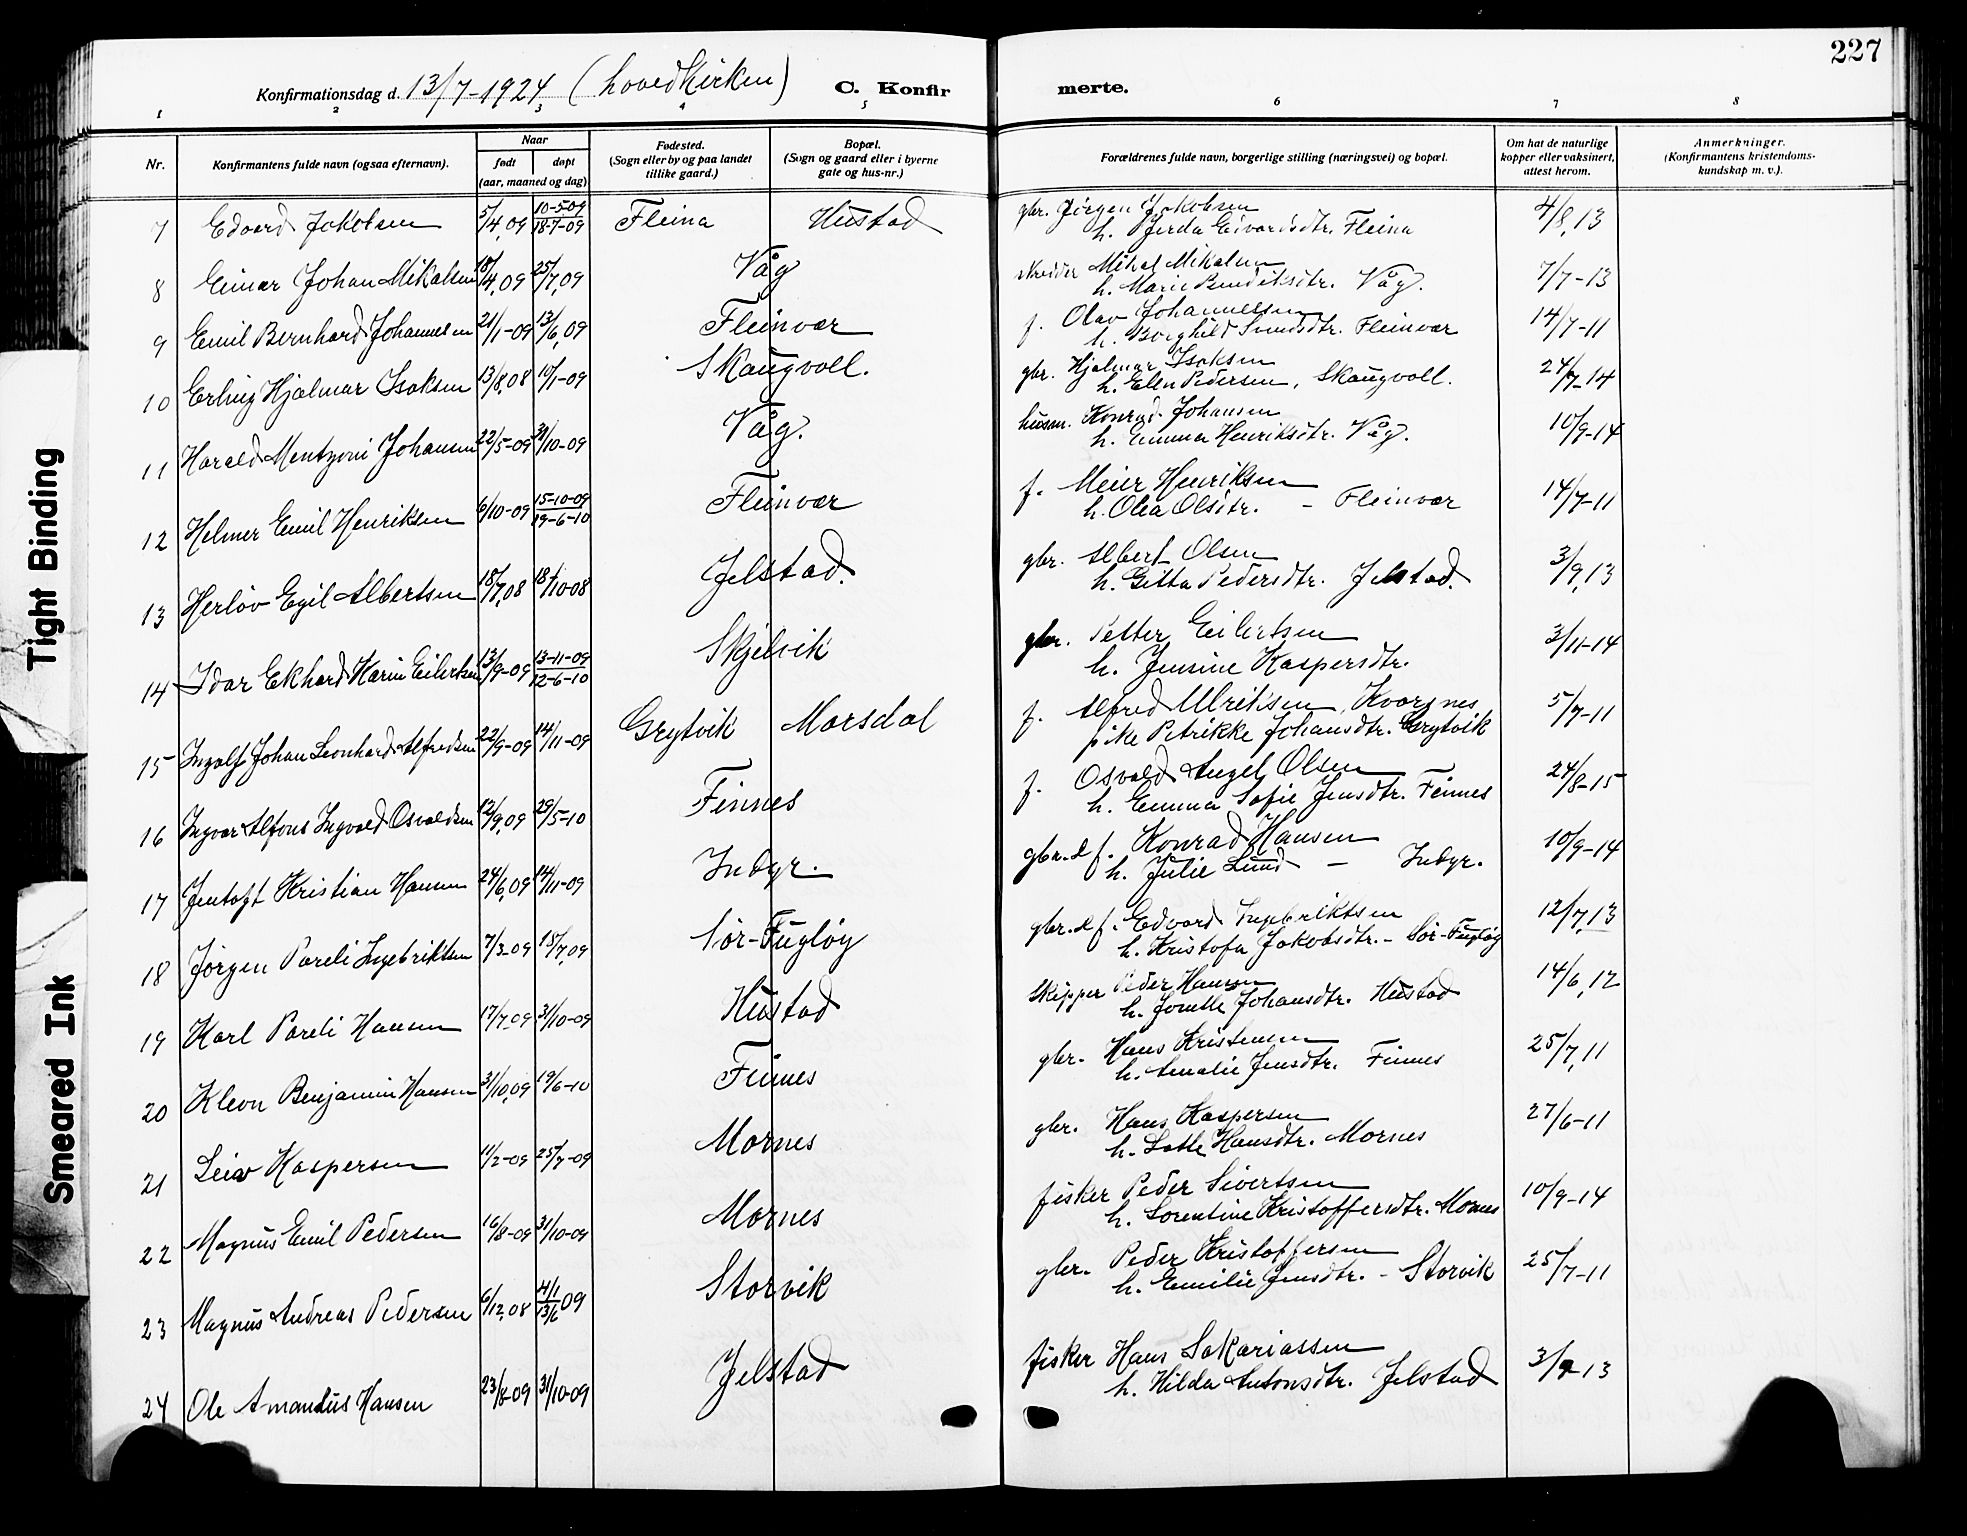 227
Konfirmationsdag d. 13/7-1924 (hovedkirken) C. Konfirmerte.
1 2 3 4 5 6 7 8
Nr. Konfirmantens fulde navn (ogsaa efternavn). Naar født døpt (aar, maaned og dag) Fødested. (Sogn eller by og paa landet tillike gaard.) Bopæl. (Sogn og gaard eller i byerne gate og hus-nr.) Forældrenes fulde navn, borgerlige stilling (næringsvei) og bopæl. Om hat de naturlige kopper eller vaksinert, attest herom. Anmerkninger. (Konfirmantens kristendoms-kundskap m. v.).
7 Edvard Jakobsen 5/4,09 10-5-09 18-7-09 Fleina Hustad gbr. Jørgen Jakobsen 4/8,13
h. Gjerda Edvardsdtr. Fleina
8 Einar Johan Mikalsen 18/4,09 25/7,09 Våg skredder Mikal Mikalsen 7/7-13
h. Marie Bendiksdtr. Våg.
9 Emil Bernhard Johannesen 21/1-09 13/6,09 Fleinvær f. Olav Johannessen 14/7-11
h. Borghild Svendsdtr. Fleinvær
10 Erling Hjalmar Isaksen 13/8,08 10/1-09 Skaugvoll. gbr. Hjalmar Isaksen 24/7-14
h. Elen Pedersen, Skaugvoll.
11 Harald Mentzoni Johansen 22/5-09 31/10-09 Våg. husm. Konrad Johansen 10/9-14
h. Emma Henriksdtr. Våg.
12 Helmer Emil Henriksen 6/10-09 15-10-09 19-6-10 Fleinvær f. Meier Henriksen 14/7-11
h. Olea Olsdtr. - Fleinvær
13 Herlöv Egil Albertsen 18/7,08 18/10-08 Jelstad. gbr. Albert Olsen 3/9,13
h. Gitta Pedersdtr. Jelstad.
14 Idar Ekhard Karin Eilertsen 13/9-09 13-11-09 12-6-10 Skjelvik gbr. Petter Eilertsen 3/11-14
h. Jensine Kaspersdtr.
15 Ingolf Johan Leonhard Alfredsen 22/9-09 14/11-09 Grytvik Morsdal f. Alfred Ulriksen, Kvarsnes 5/7-11
pike Petrikke Johansdtr. Grytvik
16 Ingvar Alfons Ingvald Osvaldsen 12/9,09 29/5-10 Finnes f. Osvald Angel Olsen 24/8-15
h. Emma Sofie Jensdtr. Finnes
17 Jentoft Kristian Hansen 24/6,09 14/11-09 Indyr. gbr. d f. Konrad Hansen 10/9-14
h. Julie Lund - Indyr.
18 Jørgen Pareli Ingebriktsen 7/3-09 15/7,09 Sør-Fugløy gbr. d f. Edvard Ingebriktsen 12/7,13
h. Kristofa Jakobsdtr. - Sør-Fugløy
19 Karl Pareli Hansen 17/7-09 31/10-09 Hustad Skipper Peder Hansen 14/6,12
h. Jomtle Johansdtr. Hustad
20 Kleon Benjamin Hansen 31/10,09 19/6-10 Finnes gbr. Hans Kristensen 25/7,11
h. Amalie Jensdtr. Finnes
21 Leiv Kaspersen 11/2-09 25/7-09 Mornes gbr. Hans Kaspersen 27/6-11
h. Lotte Hansdtr. Mornes
22 Magnus Emil Pedersen 16/8-09 31/10-09 Mornes fisker Peder Sivertsen 10/9-14
h. Lorentine Kristoffersdtr. Mornes
23 Magnus Andreas Pedersen 6/12,08 4/1 13/6 09 Storvik gbr. Peder Kristoffersen 25/7-11
h. Emilie Jensdtr. - Storvik
24 Ole Amandus Hansen 23/8-09 31/10-09 Jelstad fisker Hans Sakariassen 3/9-13
h. Hilda Antonsdtr. Jelstad
Tight Binding
Smeared Ink